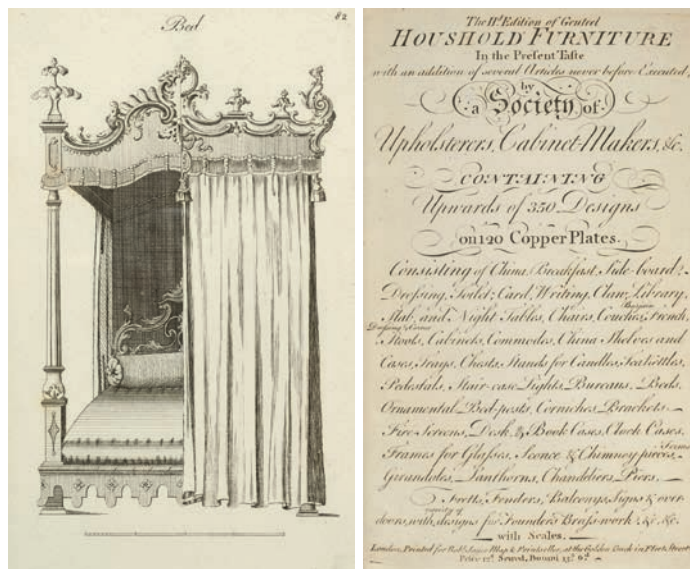 Bed
82
The IId. Edition of Genteel
HOUSHOLD FURNITURE
In the Present Taste
with an addition of several Articles never before Executed,
by
a Society of
Upholsterers, Cabinet-Makers, &c.
CONTAINING
Upwards of 350 Designs
on 120 Copper Plates.
Consisting of China, Breakfast, Side-board,
Dressing, Toilet, Card, Writing, Claw, Library,
Slab, and Night Tables, Chairs, Couches, French
Stools, Cabinets, Commodes, China Shelves and
Cases, Trays, Chests, Stands for Candles, Tea Kettles,
Pedestals, Stair-case Lights, Bureaus, Beds,
Ornamental Bed-posts, Corniches, Brackets,
Fire-Screens, Desk, & Book Cases, Clock Cases,
Frames for Glasses, Sconce & Chimney-pieces,
Girandoles, Lanthorns, Chandeliers,
Fretts, Fenders, Balconys, Signs & over
doors, with variety of designs for Founders Brass-work &c. &c.
with Scales.
London, Printed for Robt. Sayer Map & Printseller, at the Golden Buck in Fleet Street
Price Sewed, Bound